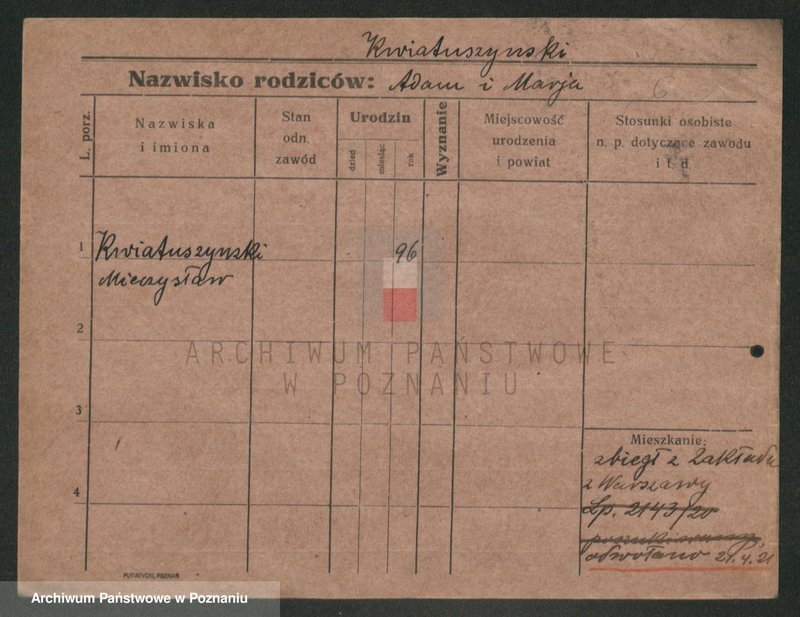 Kwiatuszynski
Nazwisko rodziców: Adam i Marja
6
L. porz.
Nazwiska
i imiona
Stan
odn.
zawód
Urodzin
dzień
miesiąc
rok
Wyznanie
Miejscowość
urodzenia
i powiat
Stosunki osobiste
n. p. dotyczące zawodu
i t. d.
1
Kwiatuszynski
96
Mieczysław
2
ARCHIWUM PAŃSTWOWE
W POZNANIU
3
Mieszkanie:
zbiegł z Zakładu
z Warszawy
4
Lp. 2143/20
poszukiwany,
odwołano 21.4.21
PUTIATYCKI, POZNAŃ
Archiwum Państwowe w Poznaniu